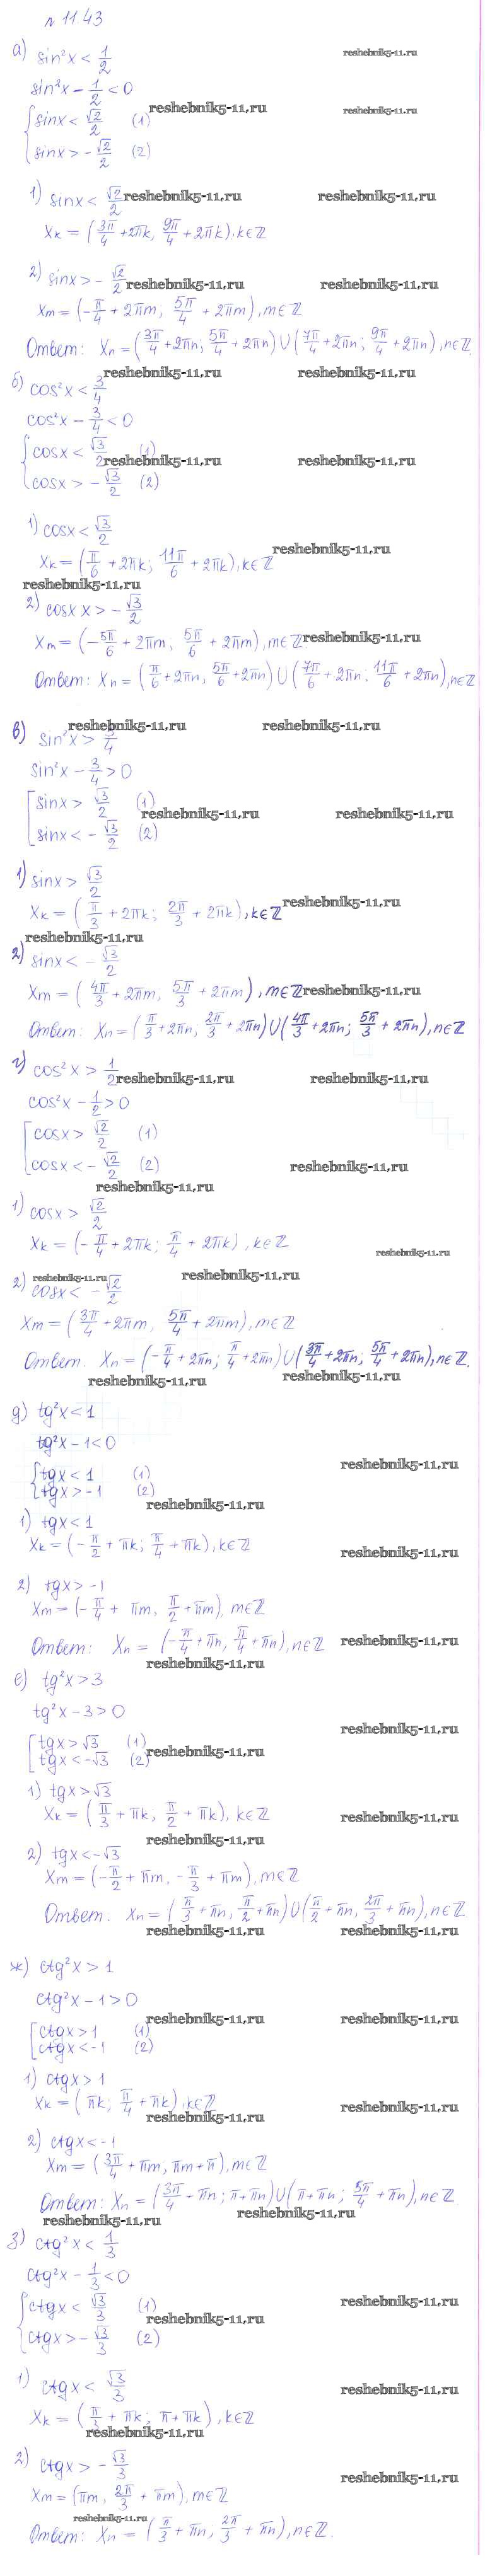 № 1143
а) sin²x < 1/2
reshebnik5-11.ru
sin²x - 1/2 < 0
reshebnik5-11.ru reshebnik5-11.ru
{ sinx < √2/2 (1)
sinx > - √2/2 (2)
1) sinx < √2/2
reshebnik5-11.ru reshebnik5-11.ru
Xk = (3π/4 + 2πk, 9π/4 + 2πk), k∈Z
2) sinx > - √2/2
reshebnik5-11.ru reshebnik5-11.ru
Xm = (-π/4 + 2πm; 5π/4 + 2πm), m∈Z
Ответ: Xn = (3π/4 + 2πn; 5π/4 + 2πn) U (7π/4 + 2πn; 9π/4 + 2πn), n∈Z.
reshebnik5-11.ru reshebnik5-11.ru
б) cos²x < 3/4
cos²x - 3/4 < 0
{ cosx < √3/2 (1)
reshebnik5-11.ru reshebnik5-11.ru
cosx > - √3/2 (2)
1) cosx < √3/2
reshebnik5-11.ru
Xk = (π/6 + 2πk; 11π/6 + 2πk), k∈Z
reshebnik5-11.ru
2) cosx x > - √3/2
Xm = (-5π/6 + 2πm; 5π/6 + 2πm), m∈Z.
reshebnik5-11.ru
Ответ: Xn = (π/6 + 2πn, 5π/6 + 2πn) U (7π/6 + 2πn; 11π/6 + 2πn), n∈Z
reshebnik5-11.ru reshebnik5-11.ru
в) sin²x > 3/4
sin²x - 3/4 > 0
[ sinx > √3/2 (1)
reshebnik5-11.ru reshebnik5-11.ru
sinx < - √3/2 (2)
1) sinx > √3/2
reshebnik5-11.ru
Xk = (π/3 + 2πk; 2π/3 + 2πk), k∈Z
reshebnik5-11.ru
2) sinx < - √3/2
Xm = (4π/3 + 2πm, 5π/3 + 2πm), m∈Z
reshebnik5-11.ru
Ответ: Xn = (π/3 + 2πn; 2π/3 + 2πn) U (4π/3 + 2πn; 5π/3 + 2πn), n∈Z
г) cos²x > 1/2
reshebnik5-11.ru reshebnik5-11.ru
cos²x - 1/2 > 0
[ cosx > √2/2 (1)
cosx < - √2/2 (2)
reshebnik5-11.ru
reshebnik5-11.ru
1) cosx > √2/2
Xk = (-π/4 + 2πk; π/4 + 2πk), k∈Z
reshebnik5-11.ru
reshebnik5-11.ru reshebnik5-11.ru
2) cosx < - √2/2
Xm = (3π/4 + 2πm, 5π/4 + 2πm), m∈Z
Ответ. Xn = (-π/4 + 2πn; π/4 + 2πn) U (3π/4 + 2πn; 5π/4 + 2πn), n∈Z.
reshebnik5-11.ru reshebnik5-11.ru
д) tg²x < 1
tg²x - 1 < 0
reshebnik5-11.ru
{ tgx < 1 (1)
tgx > -1 (2)
reshebnik5-11.ru
1) tgx < 1
Xk = (-π/2 + πk; π/4 + πk), k∈Z
reshebnik5-11.ru
2) tgx > -1
Xm = (-π/4 + πm, π/2 + πm), m∈Z
Ответ: Xn = (-π/4 + πn, π/4 + πn), n∈Z
reshebnik5-11.ru
reshebnik5-11.ru
е) tg²x > 3
tg²x - 3 > 0
reshebnik5-11.ru
[ tgx > √3 (1)
tgx < -√3 (2)
reshebnik5-11.ru
1) tgx > √3
Xk = (π/3 + πk; π/2 + πk), k∈Z
reshebnik5-11.ru
reshebnik5-11.ru
2) tgx < -√3
Xm = (-π/2 + πm, -π/3 + πm), m∈Z
reshebnik5-11.ru
Ответ. Xn = (π/3 + πn, π/2 + πn) U (π/2 + πn, 2π/3 + πn), n∈Z.
reshebnik5-11.ru reshebnik5-11.ru
ж) ctg²x > 1
ctg²x - 1 > 0
reshebnik5-11.ru reshebnik5-11.ru
[ ctgx > 1 (1)
ctgx < -1 (2)
1) ctgx > 1
Xk = (πk; π/4 + πk), k∈Z
reshebnik5-11.ru reshebnik5-11.ru
2) ctgx < -1
Xm = (3π/4 + πm, πm + π), m∈Z
Ответ: Xn = (3π/4 - πn; π + πn) U (π + πn; 5π/4 + πn), n∈Z
reshebnik5-11.ru reshebnik5-11.ru
з) ctg²x < 1/3
ctg²x - 1/3 < 0
reshebnik5-11.ru
{ ctgx < √3/3 (1)
reshebnik5-11.ru
ctgx > - √3/3 (2)
1) ctgx < √3/3
reshebnik5-11.ru
Xk = (π/3 + πk; π + πk), k∈Z
reshebnik5-11.ru
2) ctgx > - √3/3
reshebnik5-11.ru
Xm = (πm, 2π/3 + πm), m∈Z
reshebnik5-11.ru
Ответ: Xn = (π/3 + πn; 2π/3 + πn), n∈Z.